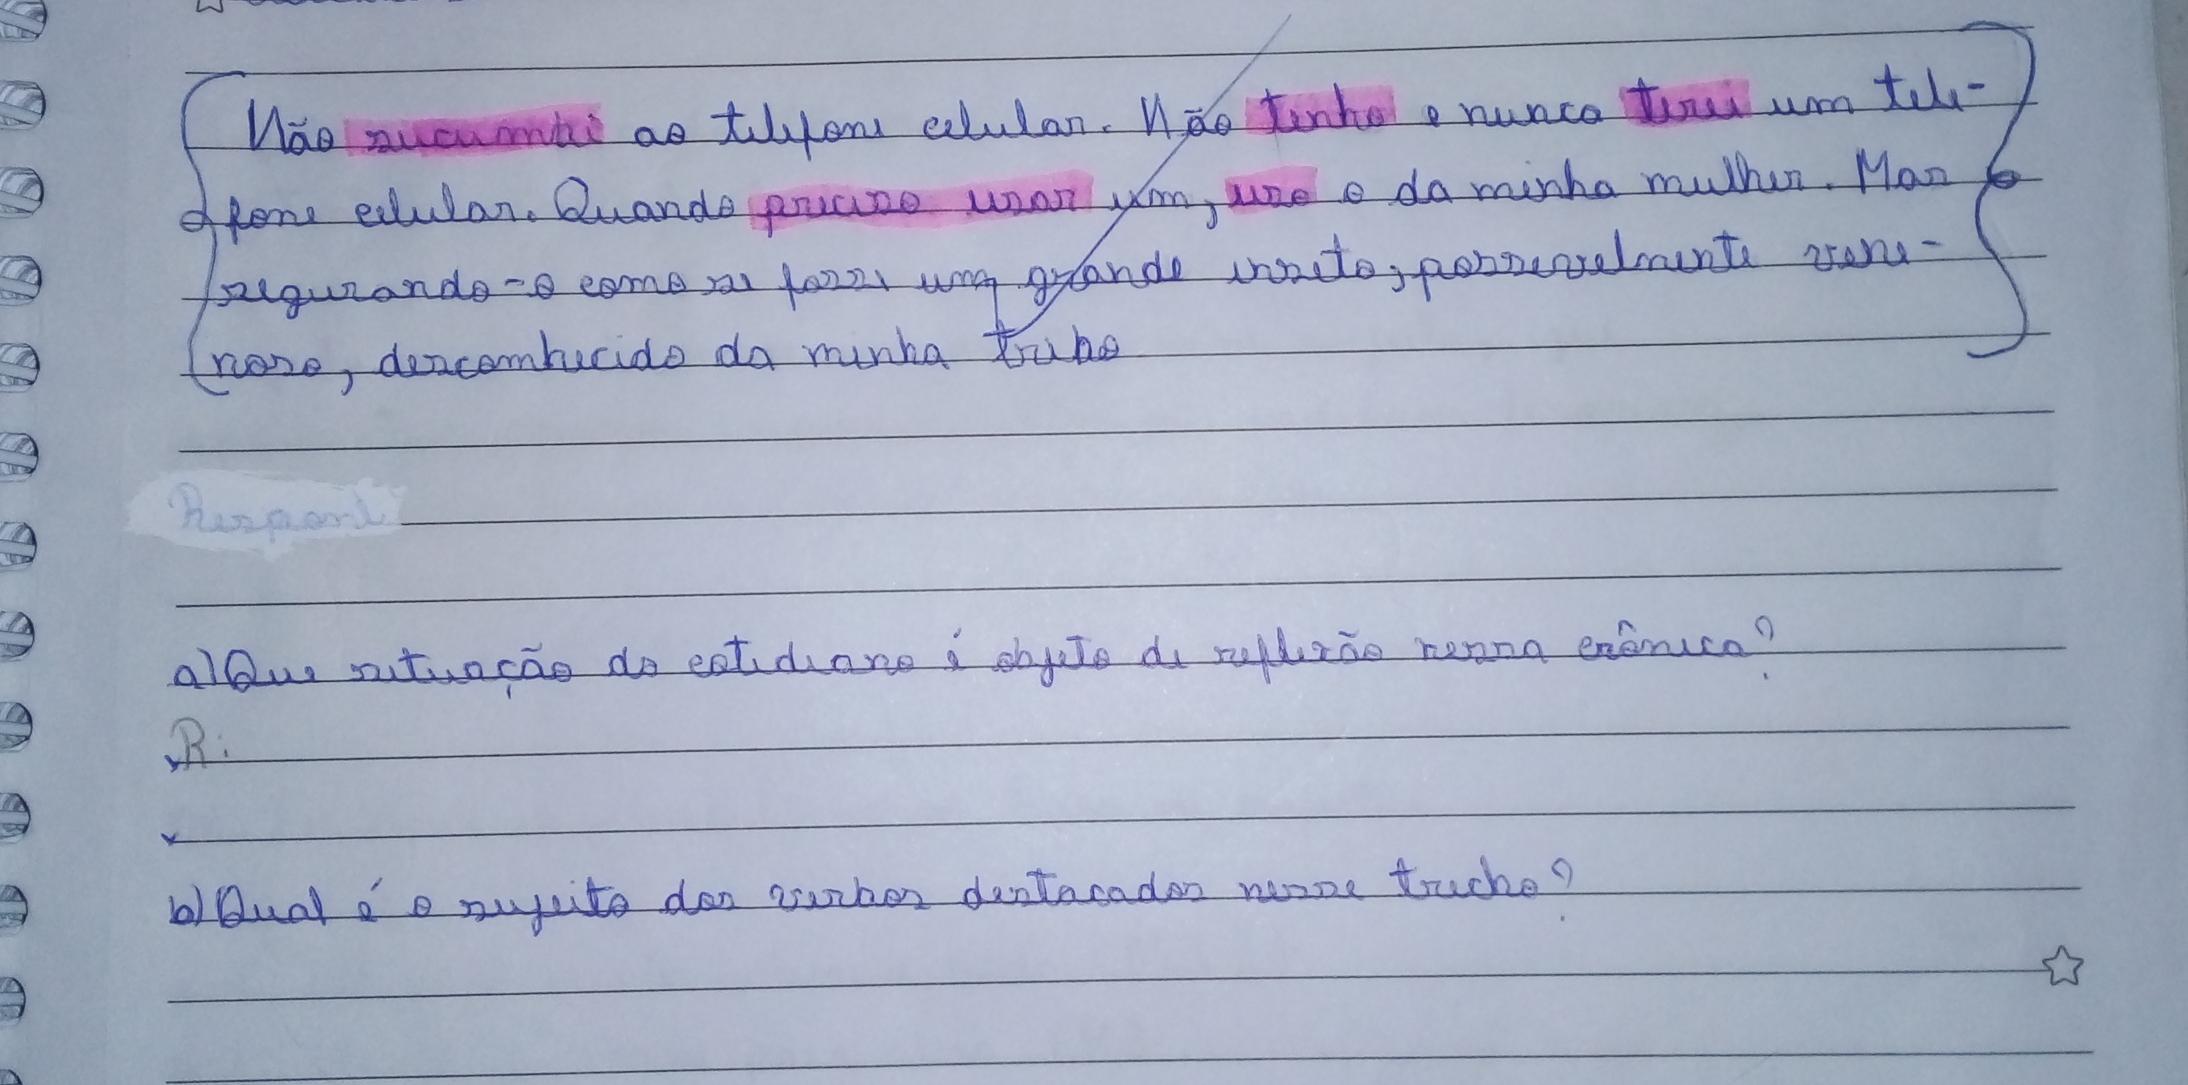 Não sucumbi ao telefone celular. Não tenho e nunca terei um tele-
fone celular. Quando preciso usar um, uso o da minha mulher. Mas
segurando-o como se fosse um grande inseto, possivelmente vene-
noso, desconhecido da minha tribo
Respond
a) Que situação do cotidiano é objeto de reflexão nessa crônica?
R:
b) Qual é o sujeito dos verbos destacados nesse trecho?